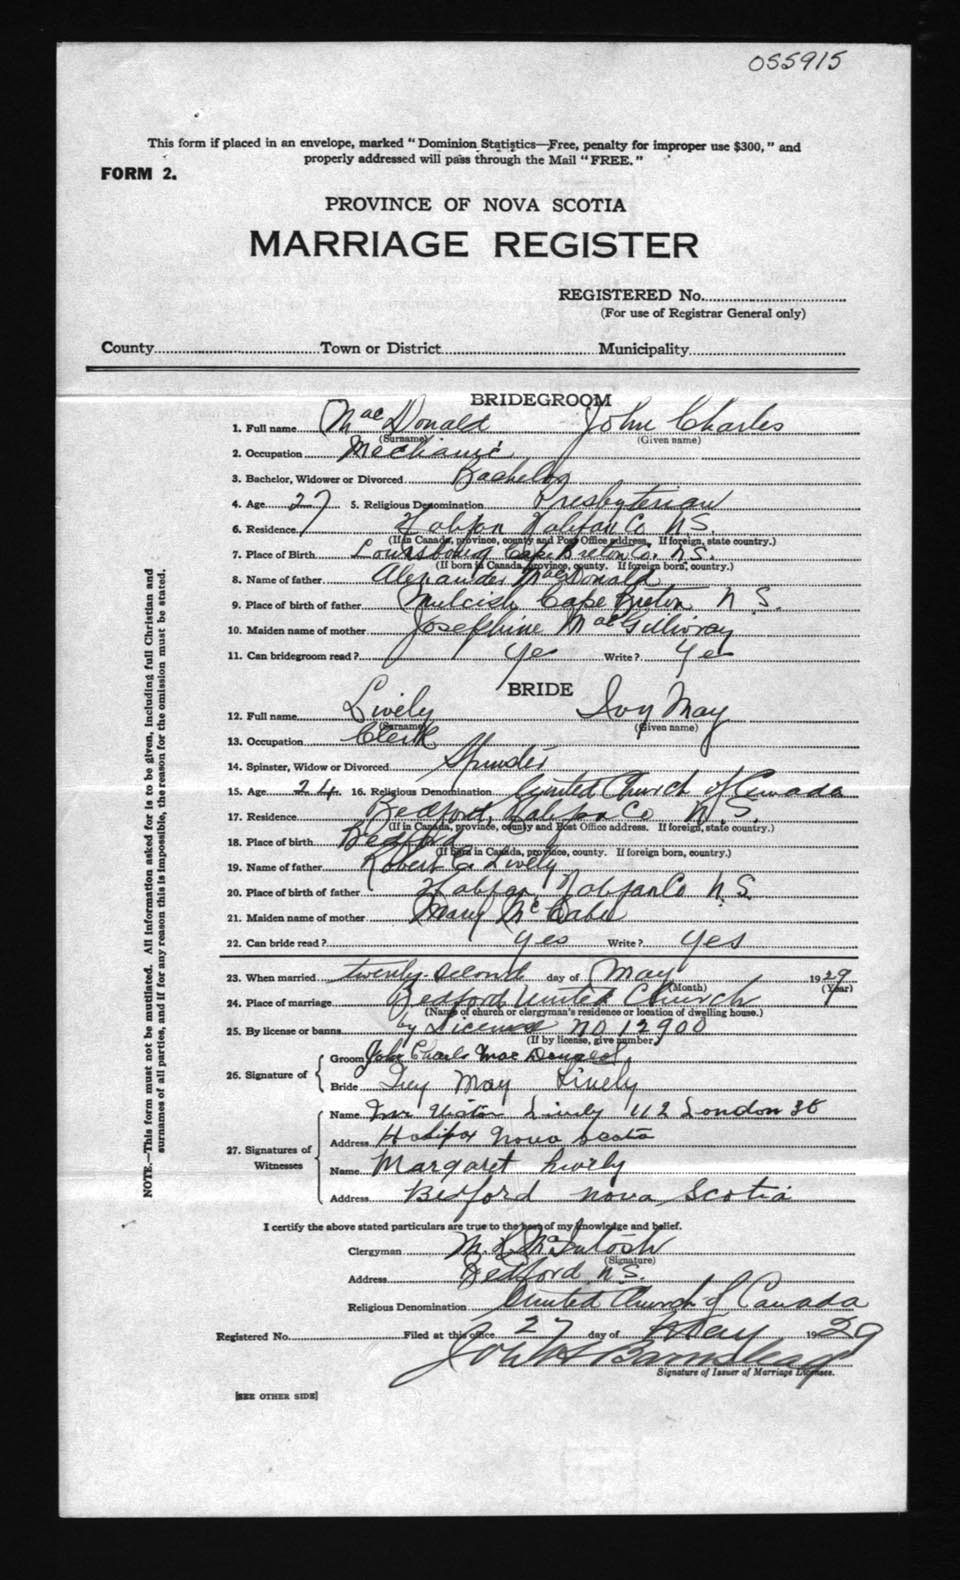 055915
This form if placed in an envelope, marked "Dominion Statistics—Free, penalty for improper use $300," and
properly addressed will pass through the Mail "FREE."
FORM 2.
PROVINCE OF NOVA SCOTIA
MARRIAGE REGISTER
REGISTERED No.
(For use of Registrar General only)
County Town or District Municipality
BRIDEGROOM
1. Full name MacDonald John Charles
(Surname) (Given name)
2. Occupation Mechanic
3. Bachelor, Widower or Divorced Bachelor
4. Age 27 5. Religious Denomination Presbyterian
6. Residence Halifax Halifax Co N.S.
(If in Canada, province, county and Post Office address. If foreign, state country.)
7. Place of Birth Louisbourg Cape Breton Co. N.S.
(If born in Canada, province, county. If foreign born, country.)
8. Name of father Alexander MacDonald
9. Place of birth of father Cape Breton N.S.
10. Maiden name of mother Josephine MacGillivray
11. Can bridegroom read? Yes Write? Yes
BRIDE
12. Full name Lively Ivy May
(Surname) (Given name)
13. Occupation Clerk
14. Spinster, Widow or Divorced Spinster
15. Age 24 16. Religious Denomination United Church of Canada
17. Residence Bedford, Halifax Co N.S.
(If in Canada, province, county and Post Office address. If foreign, state country.)
18. Place of birth Bedford
(If born in Canada, province, county. If foreign born, country.)
19. Name of father Robert Lively
20. Place of birth of father Halifax, Halifax Co N.S.
21. Maiden name of mother Mary McCabe
22. Can bride read? yes Write? yes
23. When married twenty-second day of May 1929
(Month) (Year)
24. Place of marriage Bedford United Church
(Name of church or clergyman's residence or location of dwelling house.)
25. By license or banns by License no 12900
(If by license, give number.)
26. Signature of
Groom John Charles MacDonald
Bride Ivy May Lively
27. Signatures of Witnesses
Name Victor Lively 112 London St
Address Halifax Nova Scotia
Name Margaret Lively
Address Bedford Nova Scotia
I certify the above stated particulars are true to the best of my knowledge and belief.
Clergyman McIntosh
(Signature)
Address Bedford N.S.
Religious Denomination United Church of Canada
Registered No. Filed at this office 27 day of May 1929
Signature of Issuer of Marriage Licenses.
[SEE OTHER SIDE]
NOTE.—This form must not be mutilated. All information asked for is to be given, including full Christian and
surnames of all parties, and if for any reason this is impossible, the reason for the omission must be stated.